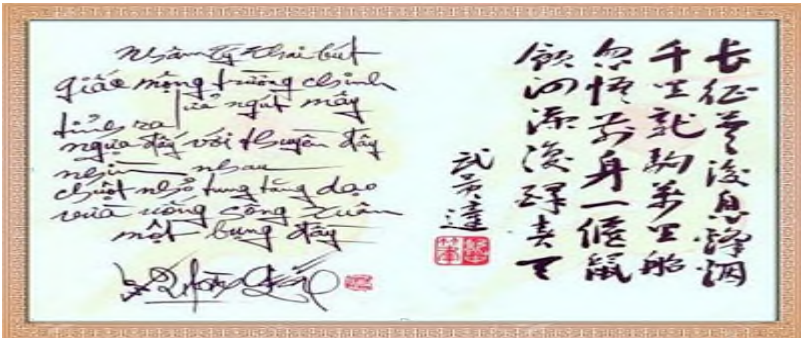 Nhâm Tý Khai bút
giấc mộng trường chinh
lửa ngút mây
tỉnh ra
ngựa đấy với thuyền đây
nhìn nhau
chuột nhỏ tung tăng dạo
vừa uống sông Xuân
một bụng đầy
长征夢後息烽烟
千里龍駒萬里船
忽悟前身一偃鼠
飲河後春天
武達